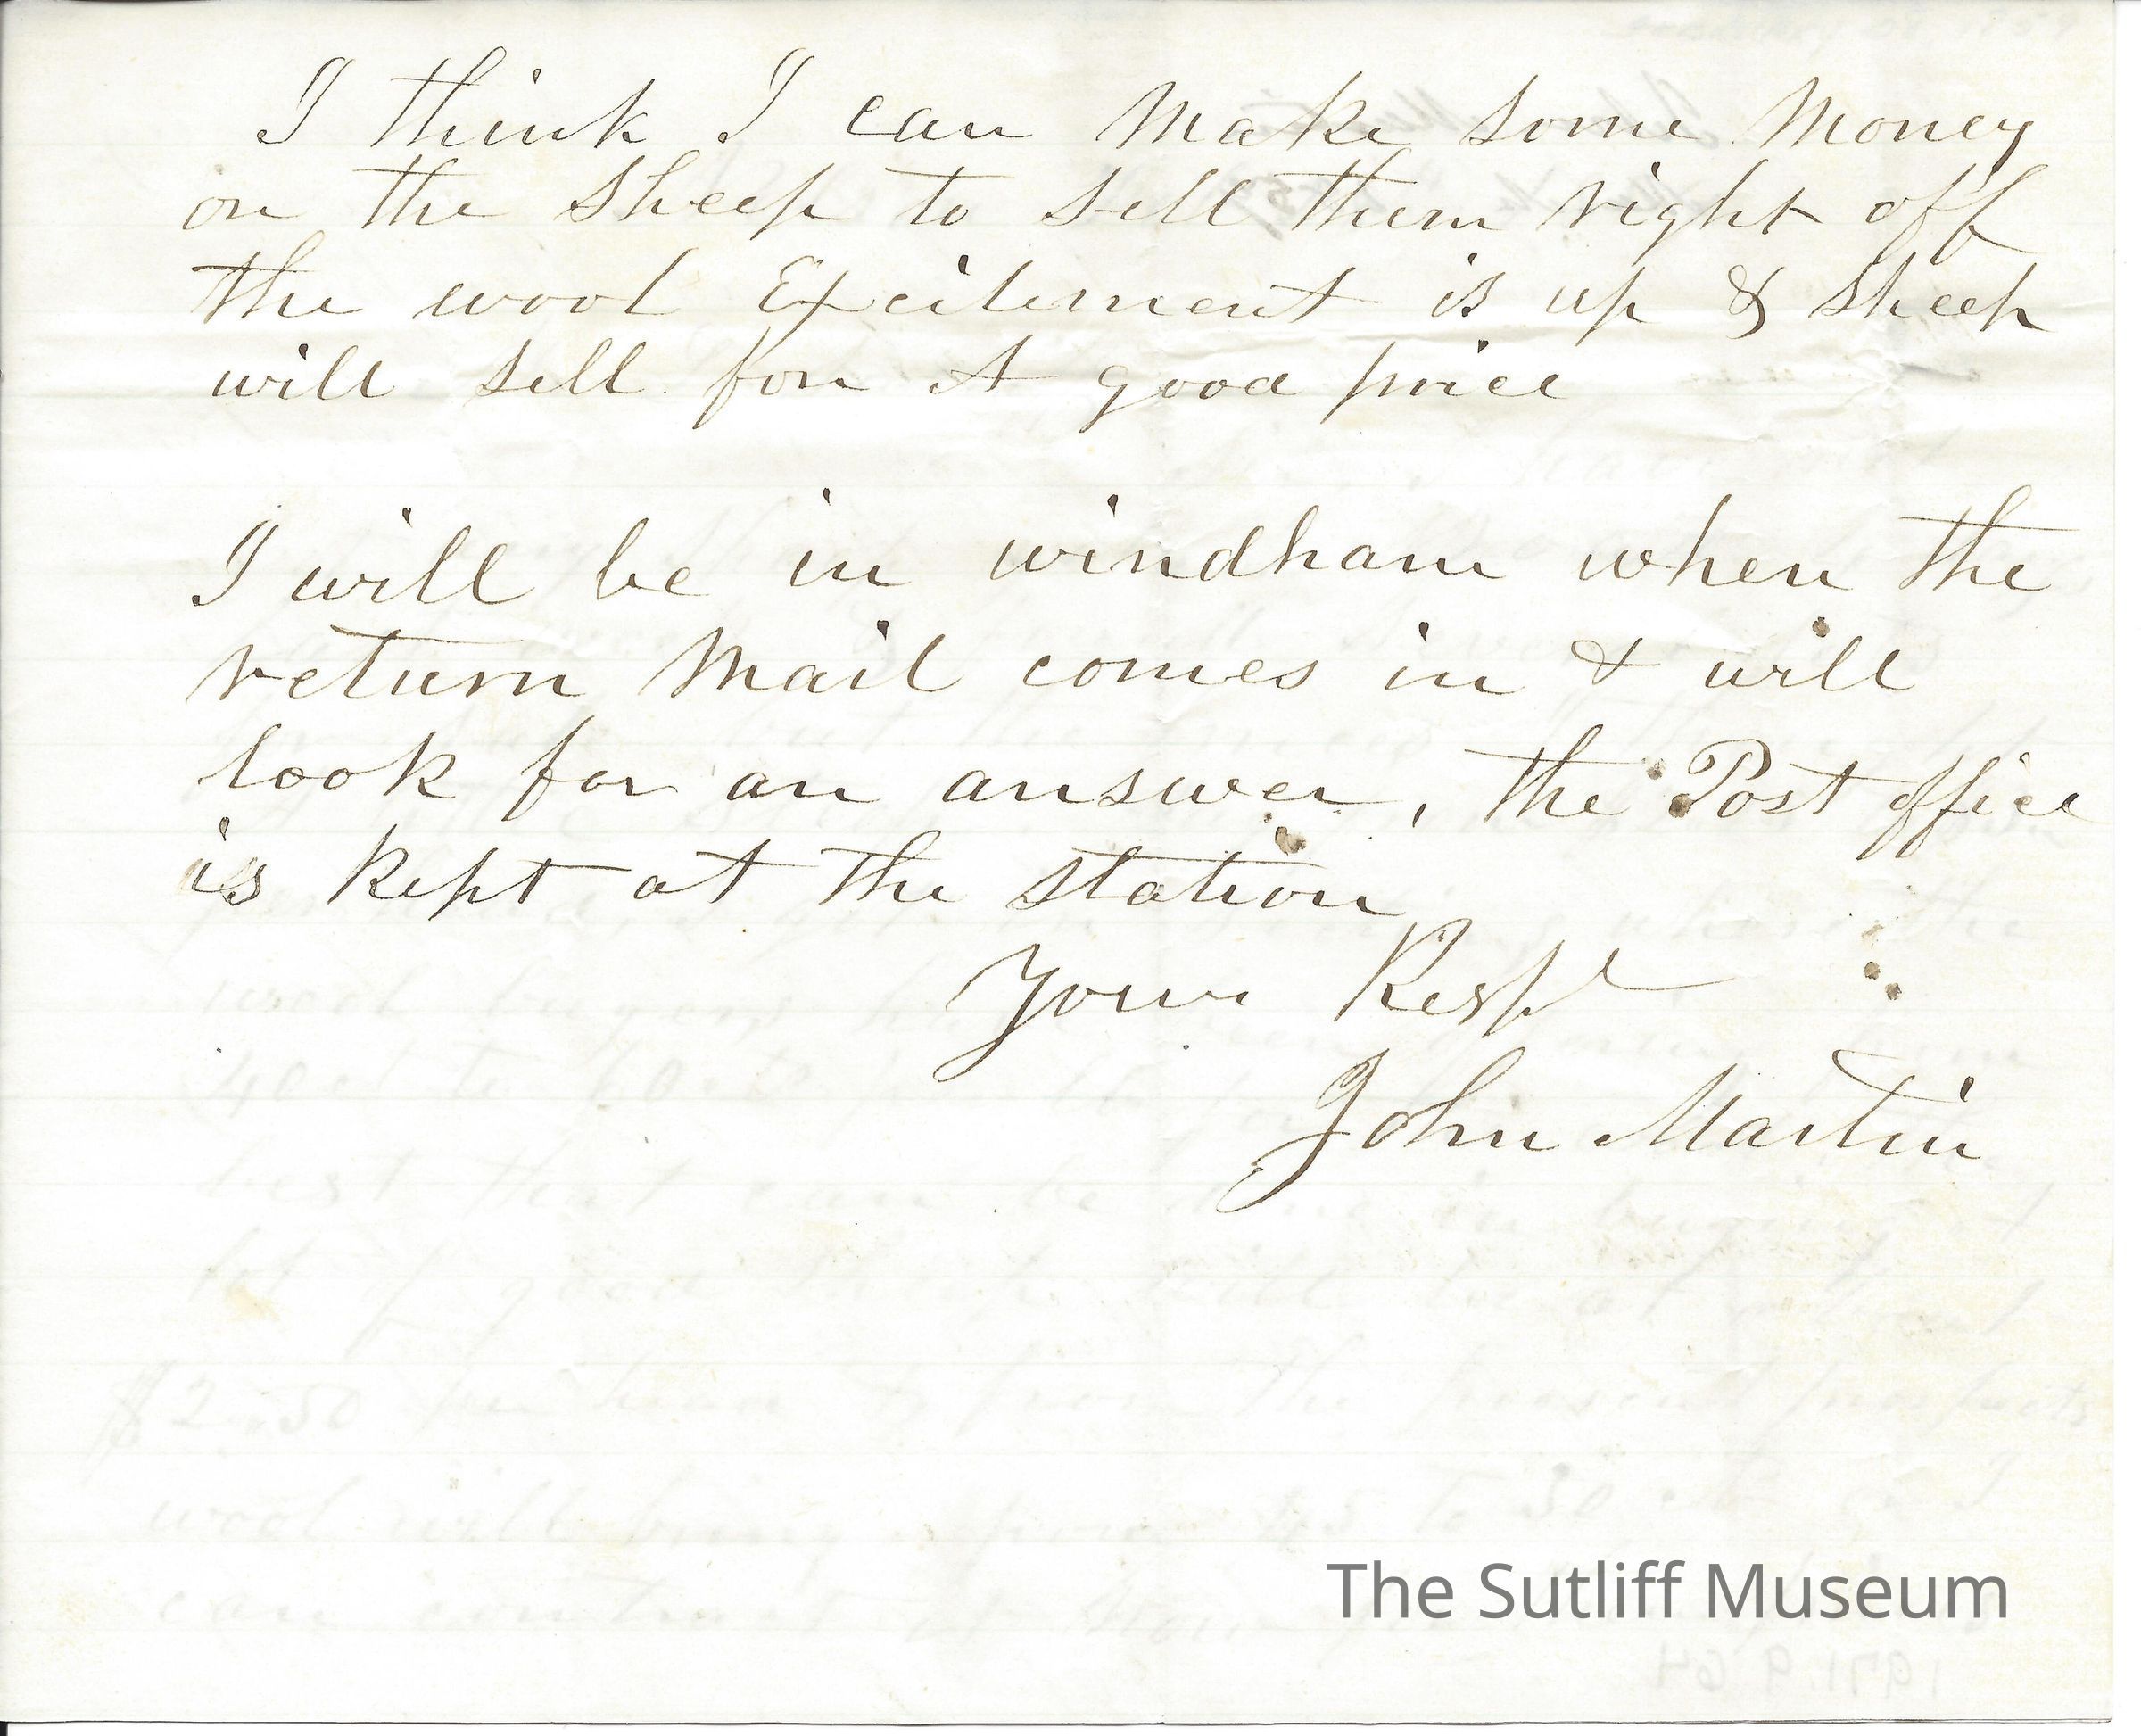 I think I can Make some Money
on the sheep to sell them right off
the wool Excitement is up & sheep
will sell for A good price
I will be in windham when the
return Mail comes in & will
look for an answer, the Post office
is Kept at the station
Your Respt
John Martin
The Sutliff Museum
1971.9.64